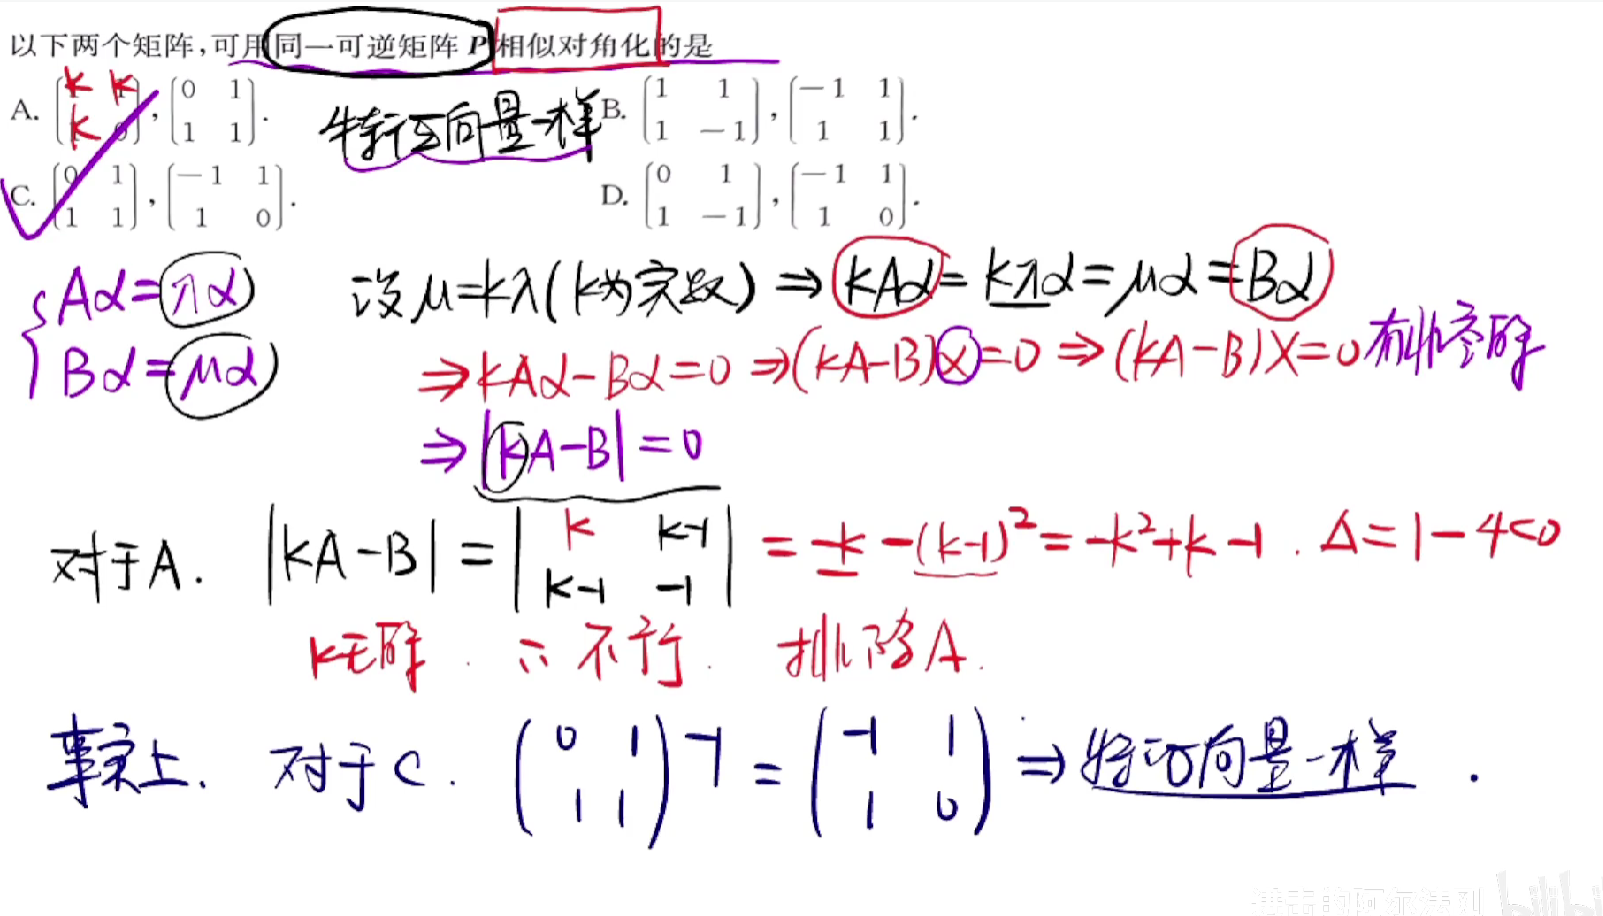 以下两个矩阵,可用同一可逆矩阵 P 相似对角化的是
A. [k k; k 0], [0 1; 1 1].
特征向量一样
B. [1 1; 1 −1], [−1 1; 1 1].
C. [0 1; 1 1], [−1 1; 1 0].
D. [0 1; 1 −1], [−1 1; 1 0].
{Aα=λα
Bα=μα
设 μ=kλ(k为实数) ⇒ kAα = kλα = μα = Bα
⇒ kAα−Bα=0 ⇒ (kA−B)α=0 ⇒ (kA−B)X=0有非零解
⇒ |kA−B|=0
对于A. |kA−B| = |k k-1; k-1 -1| = -k-(k-1)²=-k²+k-1. Δ=1-4<0
k无解. ∴不行. 排除A.
事实上. 对于C. (0 1; 1 1)⁻¹ = (-1 1; 1 0) ⇒ 特征向量一样.
bilibili